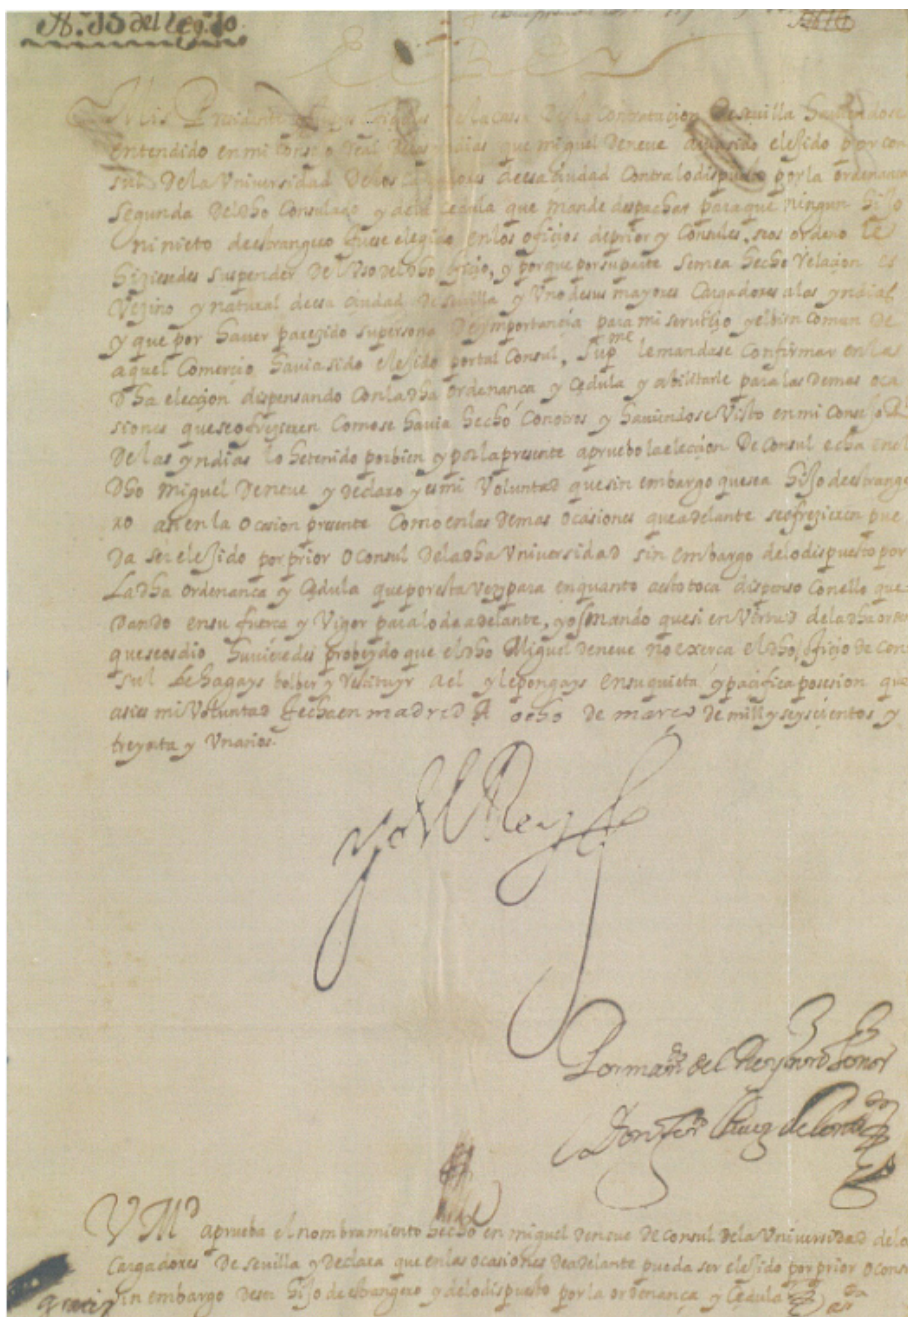 N.º 35 del leg.º 30.
El Rey
Mis Presidente y Juezes offiçiales De la cassa De la Contrataçion De sevilla haviendose
entendido en mi Consejo Real De las yndias que miguel De neve a sido elejido por con
sul De la Universidad De los Cargadores de esa ciudad Contra lo dispuesto por la ordenança
segunda Del dho Consulado y de la çedula que mande despachar para que ningun hijo
ni nieto de estrangero fuese elegido en los ofiçios de prior y Consules, y os ordeno le
hiziesedes suspender De el uso del dho ofiçio, y porque por su parte se me a hecho Relaçion es
Vezino y natural de esa çiudad De sevilla y Uno de sus mayores Cargadores a las yndias
y que por haver pareçido su persona De ymportançia para mi serviçio y el bien comun De
aquel Comerçio havia sido elejido por tal Consul, Sup.me le mandase confirmar en las
Dha elecçion dispensando Con la dha ordenança y Çedula y abilitarle para las Demas oca
siones que se ofreziesen Como se havia hecho Con otros y haviendose Visto en mi Consejo R
De las yndias lo he tenido por bien y por la presente apruebo la elecçion De Consul echa en el
Dho Miguel De neve y Declaro y es mi Voluntad que sin embargo que sea hijo de estrange
ro asi en la ocasion presente Como en las Demas ocasiones que adelante se ofrezieren pue
Da ser elejido por prior o Consul De la dha Universidad sin embargo de lo dispuesto por
La dha ordenança y Çedula que por esta vez y para en quanto a esto toca dispenso Con ello que
Dando en su fuerça y Vigor para lo de adelante, y os mando que si en Virtud de la dha orden
que se os dio huvieredes probeydo que el dho Miguel De neve no exerça el dho ofiçio de con
sul Le hagays bolber y Restituyr a el y le pongays en su quieta y paçifica posesion que
asi es mi Voluntad fecha en madrid A ocho de março de mill y seysçientos y
treynta y Un años.
Yo el Rey
Por man.do del Rey nro señor
Don fer.do Ruiz de Contreras
V M.d aprueba el nombramiento hecho en miguel De neve De consul De la Universidad de los
Cargadores De sevilla y Declara que en las ocasiones De adelante pueda ser elejido por prior o consul
sin embargo De ser hijo de estrangero y de lo dispuesto por la ordenança y Çedula